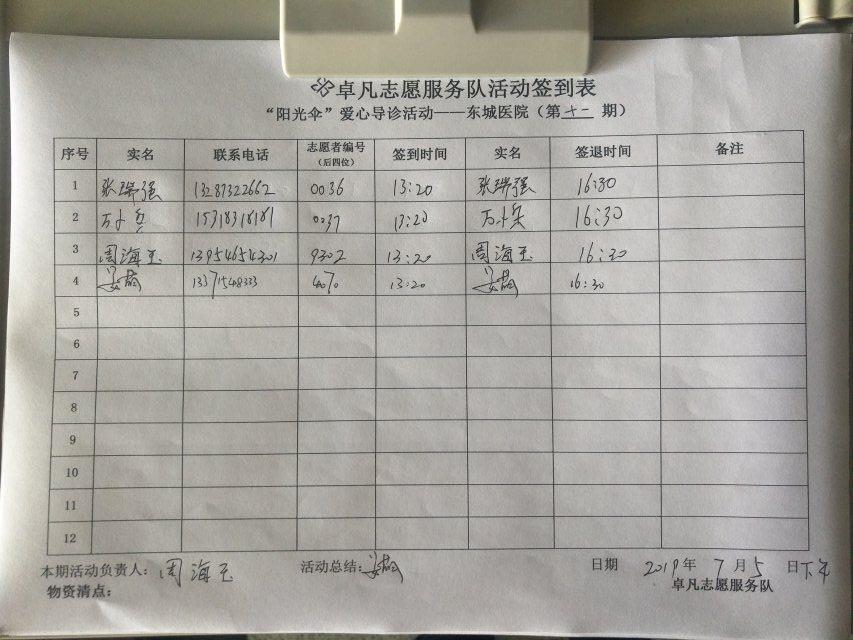 卓凡志愿服务队活动签到表
“阳光伞”爱心导诊活动——东城医院（第十一期）
序号 实名 联系电话 志愿者编号（后四位） 签到时间 实名 签退时间 备注
1 张瑞强 13287322662 0036 13:20 张瑞强 16:30
2 万小兵 15318318181 0037 13:20 万小兵 16:30
3 周海玉 13954654301 9302 13:20 周海玉 16:30
4 13371548333 13:20 16:30
5
6
7
8
9
10
11
12
本期活动负责人：周海玉 活动总结： 日期 2019年7月5日下午
物资清点： 卓凡志愿服务队